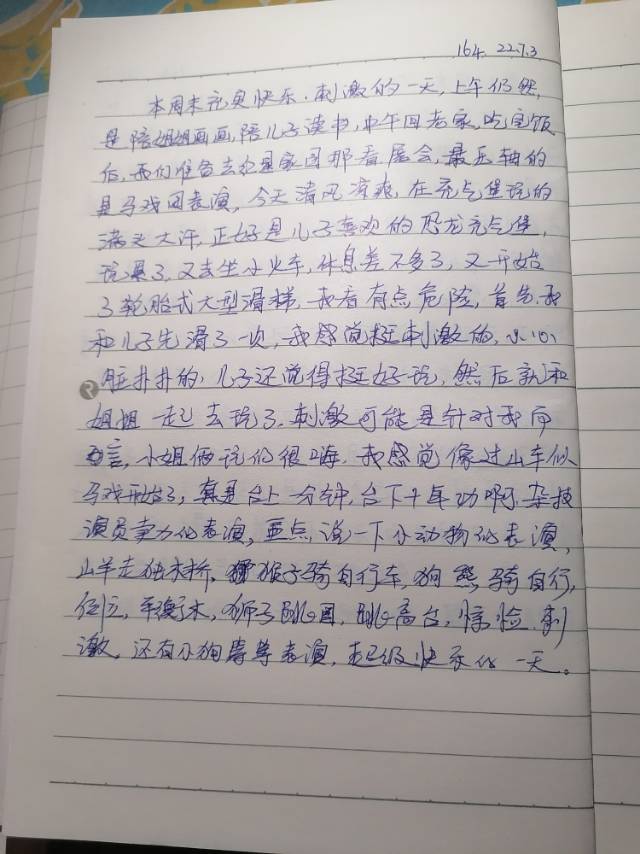 164 22.7.3
本周末充实快乐.刺激的一天,上午仍然
是陪姐姐画画,陪儿子读书,中午回老家,吃完饭
后,我们准备去看庙会,最压轴的
是马戏团表演,今天清风凉爽,在充气堡玩的
满头大汗,正好是儿子喜欢的恐龙充气堡,
玩累了,又去坐小火车,休息差不多了,又开始
了轮胎式大型滑梯,我看有点危险,首先我
和儿子先滑了一次,我感觉挺刺激的,小心
脏扑扑的,儿子还觉得挺好玩,然后就和
姐姐一起去玩了.刺激可能是针对我而
言,小姐俩玩的很嗨.我感觉像过山车似
马戏开始了,真是台上一分钟,台下十年功啊,杂技
演员卖力的表演,重点,说一下小动物的表演,
山羊走独木桥,猴子骑自行车,狗熊骑自行,
平衡木,狮子跳圈,跳高台,惊险刺
激,还有小狗等等表演,超级快乐的一天。